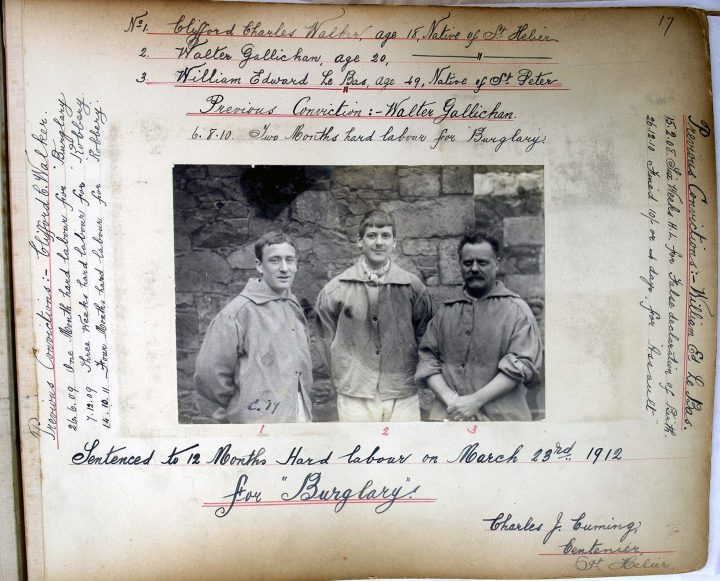 17
No 1. Clifford Charles Walker, age 18, Native of St Helier
2. Walter Gallichan, age 20, — " —
3. William Edward Le Bas, age 49, Native of St Peter
Previous Conviction :- Walter Gallichan.
6.8.10. Two Months hard labour for Burglary.
Previous Convictions :- Clifford C. Walker.
26.6.09 One Month hard labour for Burglary
7.12.09 Three Weeks hard labour for Robbery
14.10.11 Four Months hard labour for Robbery.
Previous Convictions :- William Ed Le Bas.
15.2.08 Six Weeks H.L. for False declaration of Birth.
26.12.10 Fined 10/- or 4 days, for "Assault"
1 2 3
Sentenced to 12 Months Hard labour on March 23rd. 1912
for "Burglary".
Charles J. Cuming,
Centenier,
St Helier.